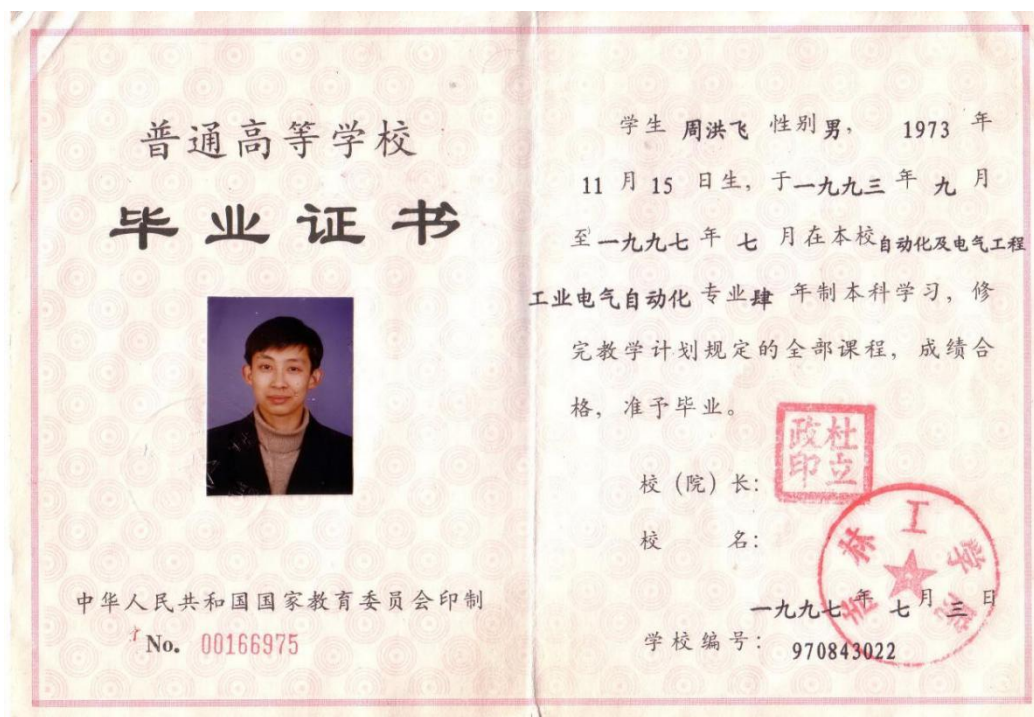 普通高等学校
毕业证书
中华人民共和国国家教育委员会印制
No. 00166975
学生 周洪飞 性别 男, 1973 年
11 月 15 日生, 于一九九三 年 九 月
至 一九九七 年 七 月在本校自动化及电气工程
工业电气自动化 专业肆 年制本科学习, 修
完教学计划规定的全部课程, 成绩合
格, 准予毕业。
杜立政印
校 (院) 长:
校 名:
吉林工学院
一九九七 年 七 月 三 日
学校编号: 970843022